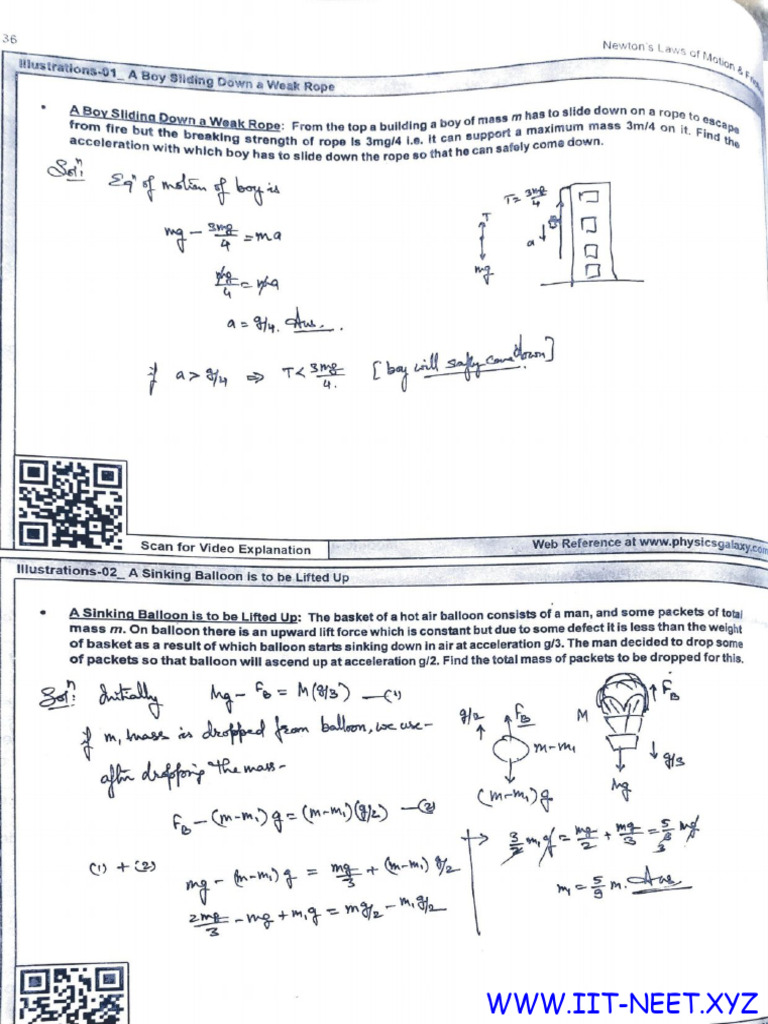 36
Newton's Laws of Motion &
Illustrations-01_ A Boy Sliding Down a Weak Rope
• A Boy Sliding Down a Weak Rope: From the top a building a boy of mass m has to slide down on a rope to escape
from fire but the breaking strength of rope is 3mg/4 i.e. it can support a maximum mass 3m/4 on it. Find the
acceleration with which boy has to slide down the rope so that he can safely come down.
Solⁿ: Eqⁿ of motion of boy is
mg - 3mg/4 = ma
mg/4 = ma
a = g/4. Ans.
if a > g/4 ⇒ T < 3mg/4. [boy will safely come down]
T = 3mg/4
T
a
mg
Scan for Video Explanation
Web Reference at www.physicsgalaxy.com
Illustrations-02_ A Sinking Balloon is to be Lifted Up
• A Sinking Balloon is to be Lifted Up: The basket of a hot air balloon consists of a man, and some packets of total
mass m. On balloon there is an upward lift force which is constant but due to some defect it is less than the weight
of basket as a result of which balloon starts sinking down in air at acceleration g/3. The man decided to drop some
of packets so that balloon will ascend up at acceleration g/2. Find the total mass of packets to be dropped for this.
Solⁿ: Initially Mg - F_B = M(g/3) —(1)
if m₁ mass is dropped from balloon, we use-
after dropping the mass-
F_B - (m-m₁)g = (m-m₁)(g/2) —(2)
(1) + (2)
mg - (m-m₁)g = mg/3 + (m-m₁)g/2
2mg/3 - mg + m₁g = mg/2 - m₁g/2
g/2
F_B
m-m₁
(m-m₁)g
M
F_B
g/3
Mg
→ 3/2 m₁g = mg/2 + mg/3 = 5/3 mg
m₁ = 5/9 m. Ans
WWW.IIT-NEET.XYZ